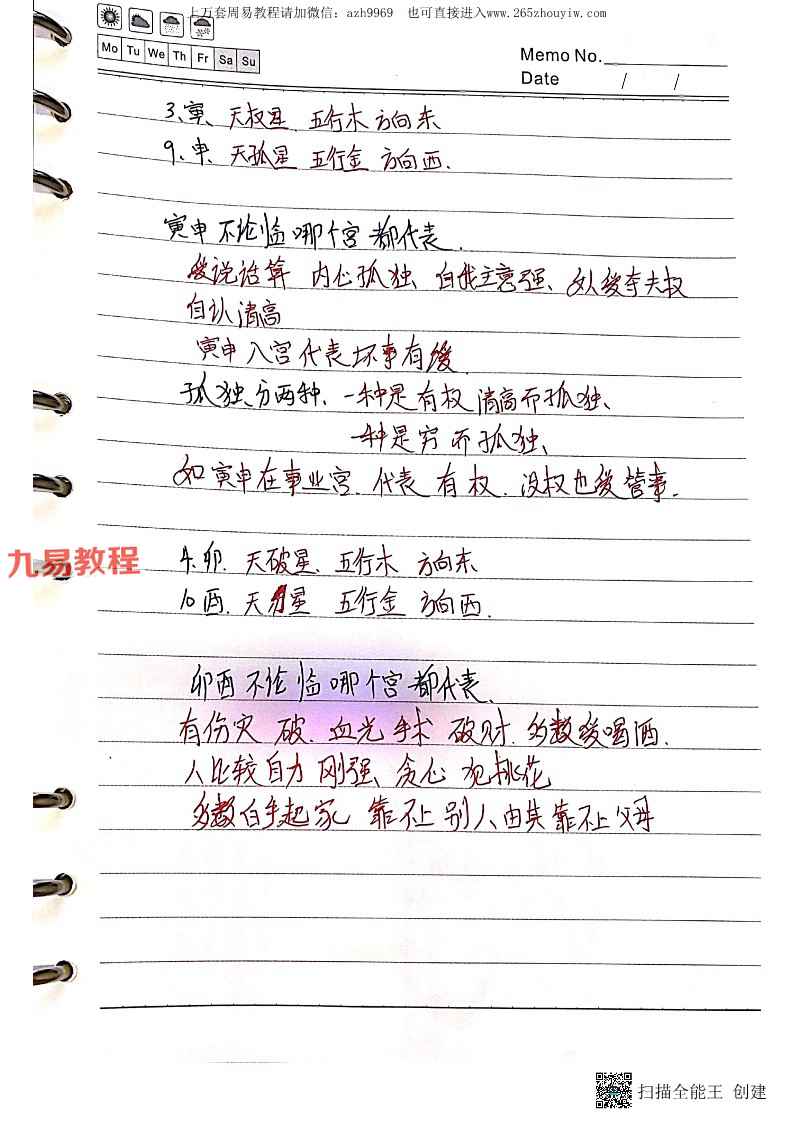 上万套周易教程请加微信：azh9969 也可直接进入www.265zhouyiw.com
Mo Tu We Th Fr Sa Su
Memo No.
Date / /
3、寅、天权星 五行木 方向东
9、申、天孤星 五行金 方向西.
寅申不论临哪个宫都代表.
爱说话算 内心孤独、自我主意强、女人爱夺夫权
自认清高
寅申入宫代表坏事有缓.
孤独分两种、一种是有权清高而孤独、
一种是穷而孤独、
如寅申在事业宫.代表有权.没权也爱管事.
九易教程
4.卯.天破星.五行木 方向东
10酉.天刃星 五行金 方向西.
卯酉不论临哪个宫都代表.
有伤灾 破.血光手术 破财.多数爱喝酒.
人比较自力 刚强、贪心 犯桃花
多数白手起家 靠不上别人由其靠不上父母
扫描全能王 创建